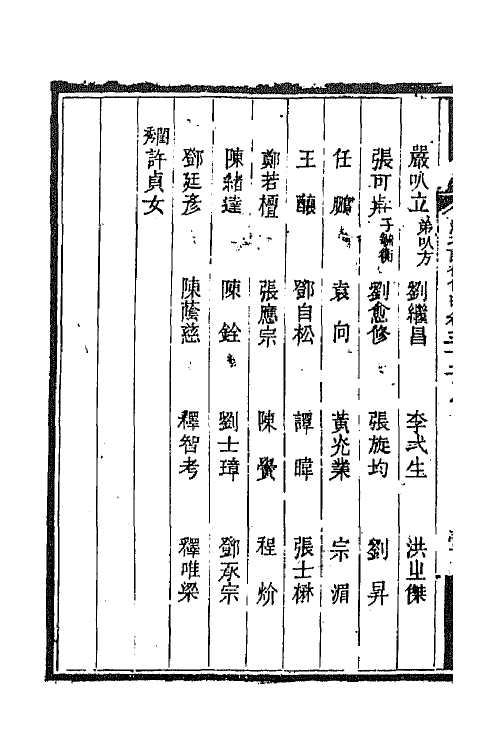 嚴㕥立弟㕥方 劉繼昌 李式生 洪㞢傑
張可 子 衡 劉愈修 張旋均 劉昇
任鵬 袁向 黃光業 宗湄
王釀 鄧自松 譚暐 張士楙
鄭若檀 張應宗 陳黌 程炌
陳緒達 陳銓 劉士璋 鄧承宗
鄧廷彥 陳蔭慈 釋智考 釋唯梁
閨秀許貞女